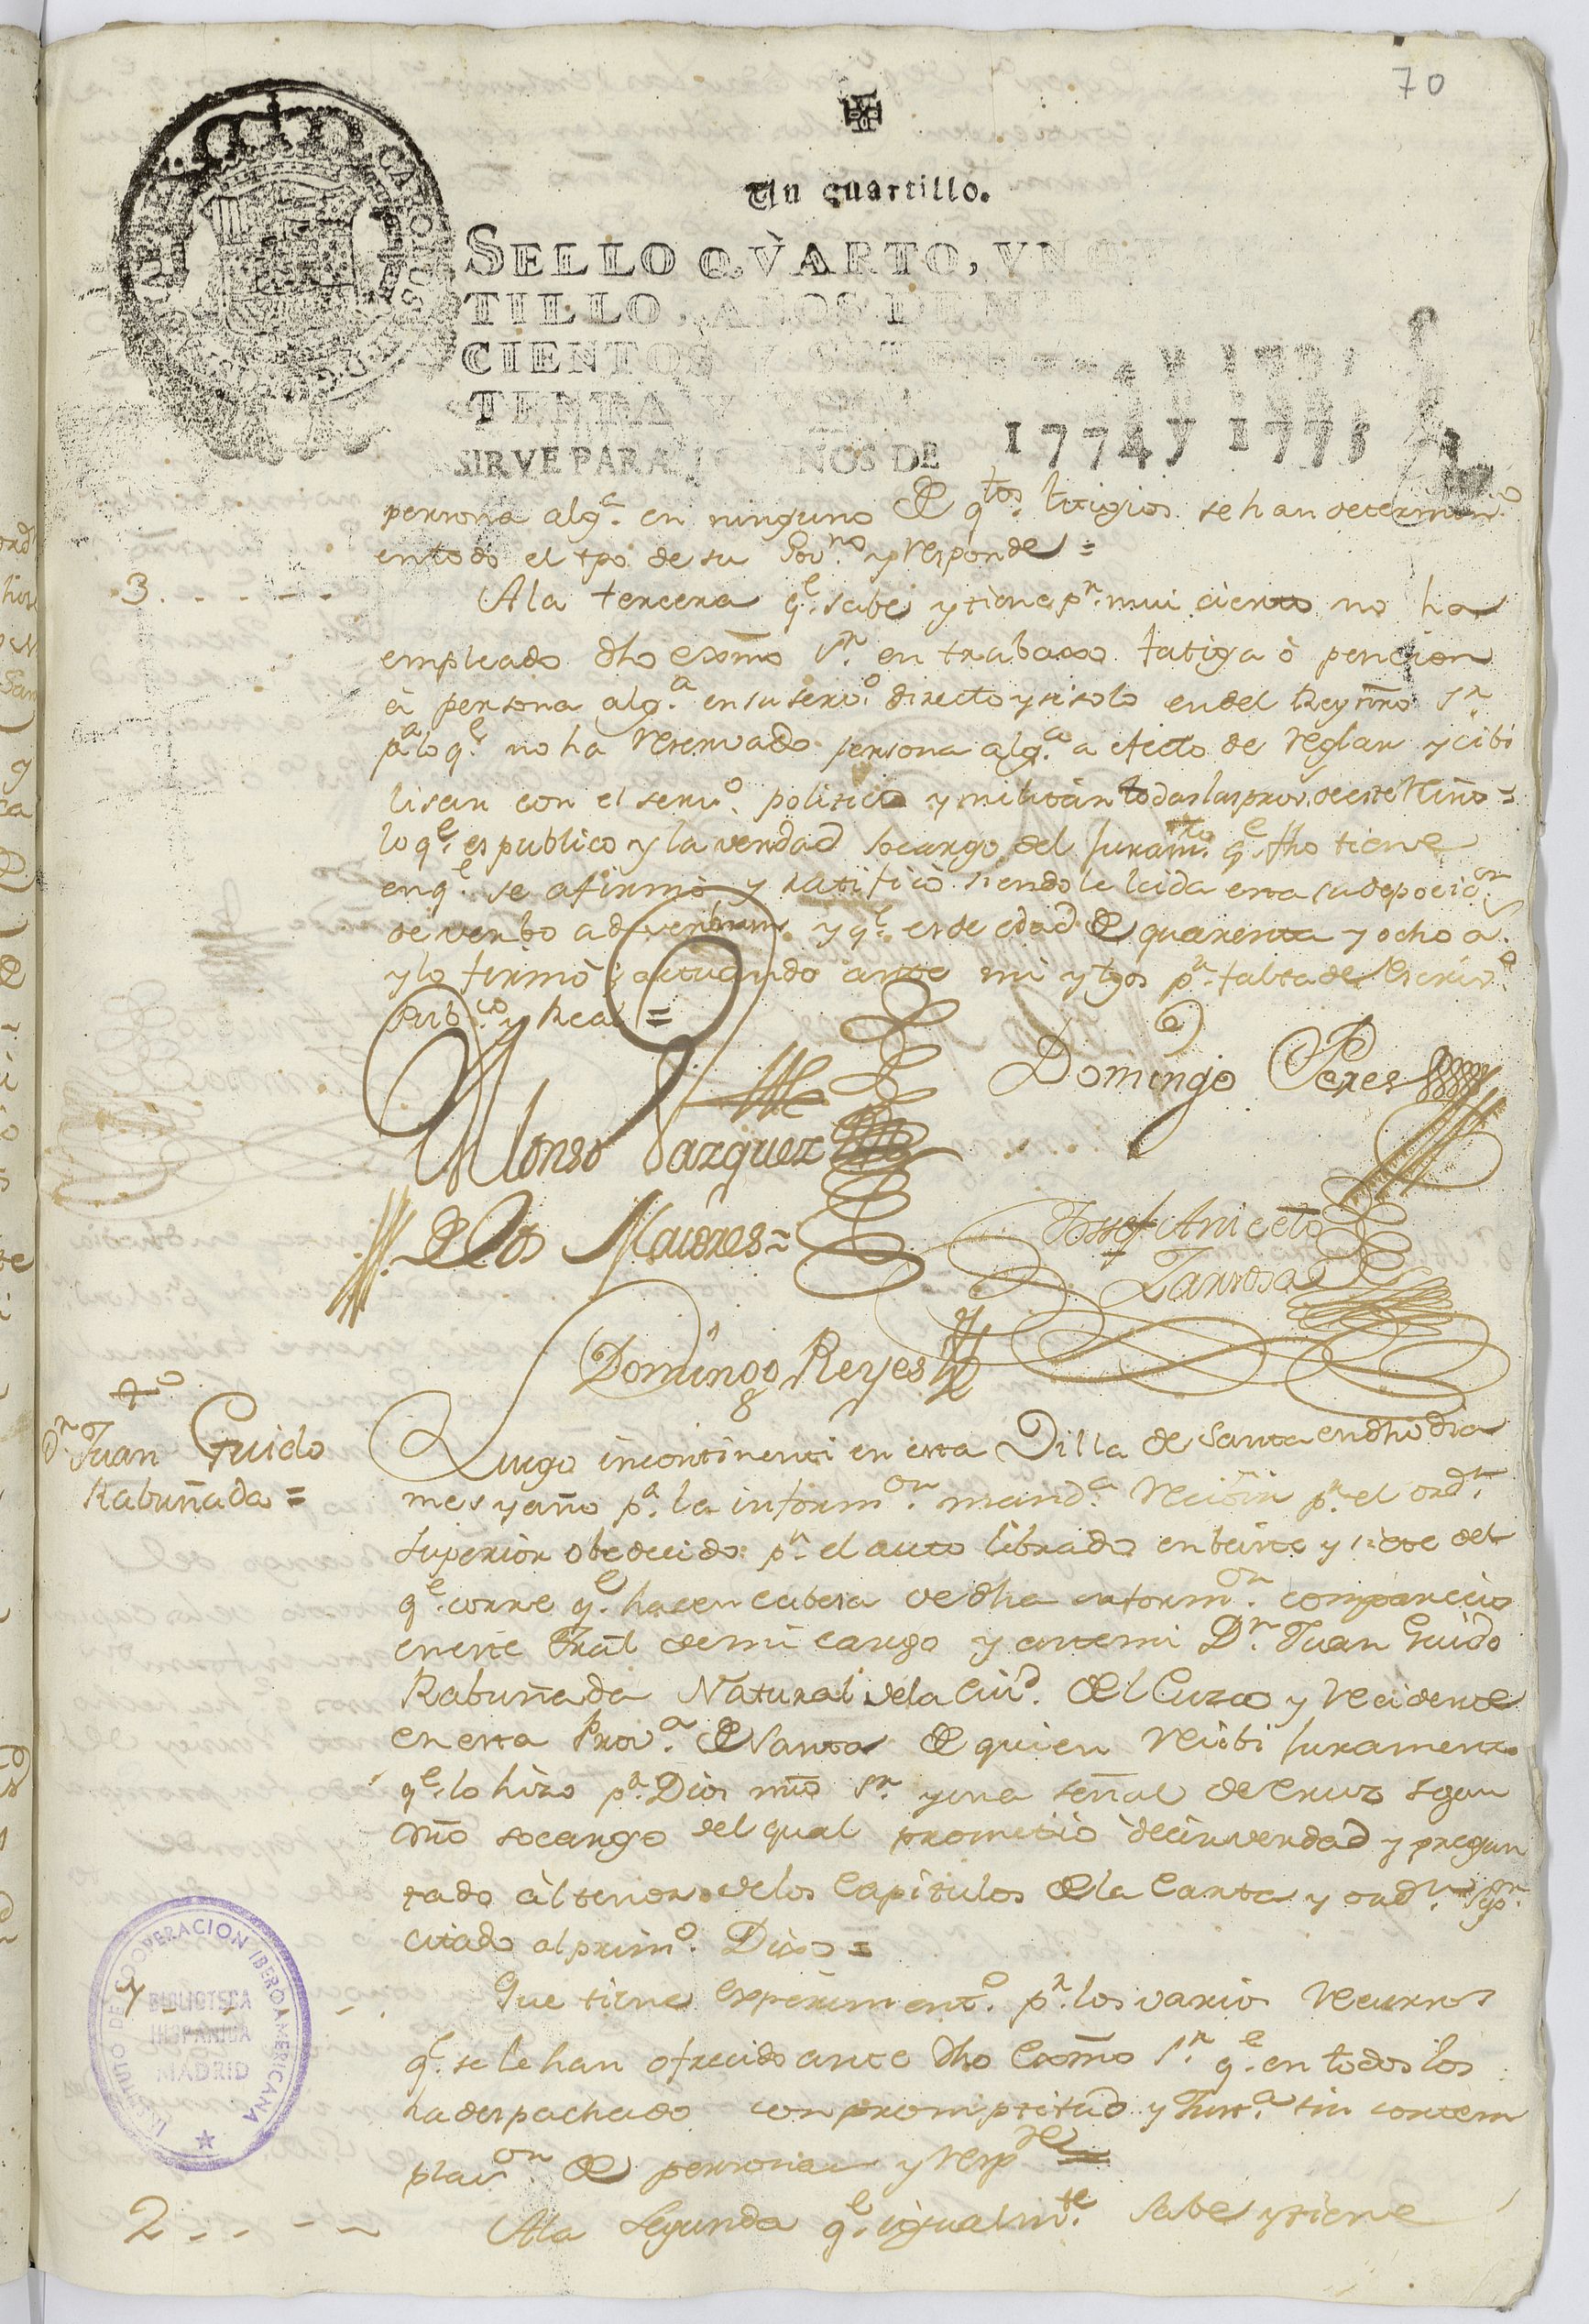 70
Un quartillo.
SELLO QVARTO, VN
TILLO, AÑOS DE M
CIENTOS Y SETEN
TENTA Y
SIRVE PARA AÑOS DE 1774 y 1775
persona algª. en ninguno de qtos. litigios se han determinº
entodo el tpo de su Govno. y responde =
3. - - - - Ala tercera qe. sabe y tiene pr. mui cierto no ha
empleado dho Exmo Sr. en trabaxo fatiga ò pencion
à persona algª. en su servº. directo y si solo en del Rey nro Sr
pª lo qe. no ha reservado persona algª. a efecto de reglar y cibi
lisar con el servº. politico y militar todas las provs. de este Rno =
lo qe. es publico y la verdad socargo del juramto. qe. fho tiene
en qe. se afirmò y ratificò siendole leida esta su depocion
de verbo ad verbum. y qe. es de edad de quarenta y ocho as.
y lo firmò actuando ante mi y tgos pr. falta de Escrivº
Pubco. y Real =
Domingo Peres
Alonso Vazquez
de los Maiores =
Josef Aniceto
Domingo Reyes
Dn. Juan Guido
Rabuñada =
Luego incontinenti en esta Villa de Santa en dho dia
mes y año pª. la informon. mandª. recivir pr. el ordn.
superior obedecido pr. el auto librado en beinte y siete del
qe. corre qe. hacen cabesa de dha informon. comparecio
en este Tral de mi cargo y ante mi Dn. Juan Guido
Rabuñada Natural de la Ciud. del Cuzco y recidente
en esta Provª. de Santa de quien recibi juramento
qe. lo hizo pr. Dios nro Sr. y una señal de cruz segun
dro socargo del qual prometiò decir verdad y pregun
tado àl tenor de los Capitulos de la Carta y ordn. Supor.
citado al primº. Dixo =
1 - - - Que tiene experimentº. pr. los varios recursos
qe. se le han ofrecido ante dho Exmo Sr. qe. en todos los
ha despachado con promptitud y Justª. sin contem
placon. de personas y respde =
2 - - - - Ala Segunda qe. igualmte. Sabe y tiene
INSTITUTO DE COOPERACION IBEROAMERICANA
BIBLIOTECA
HISPANICA
MADRID